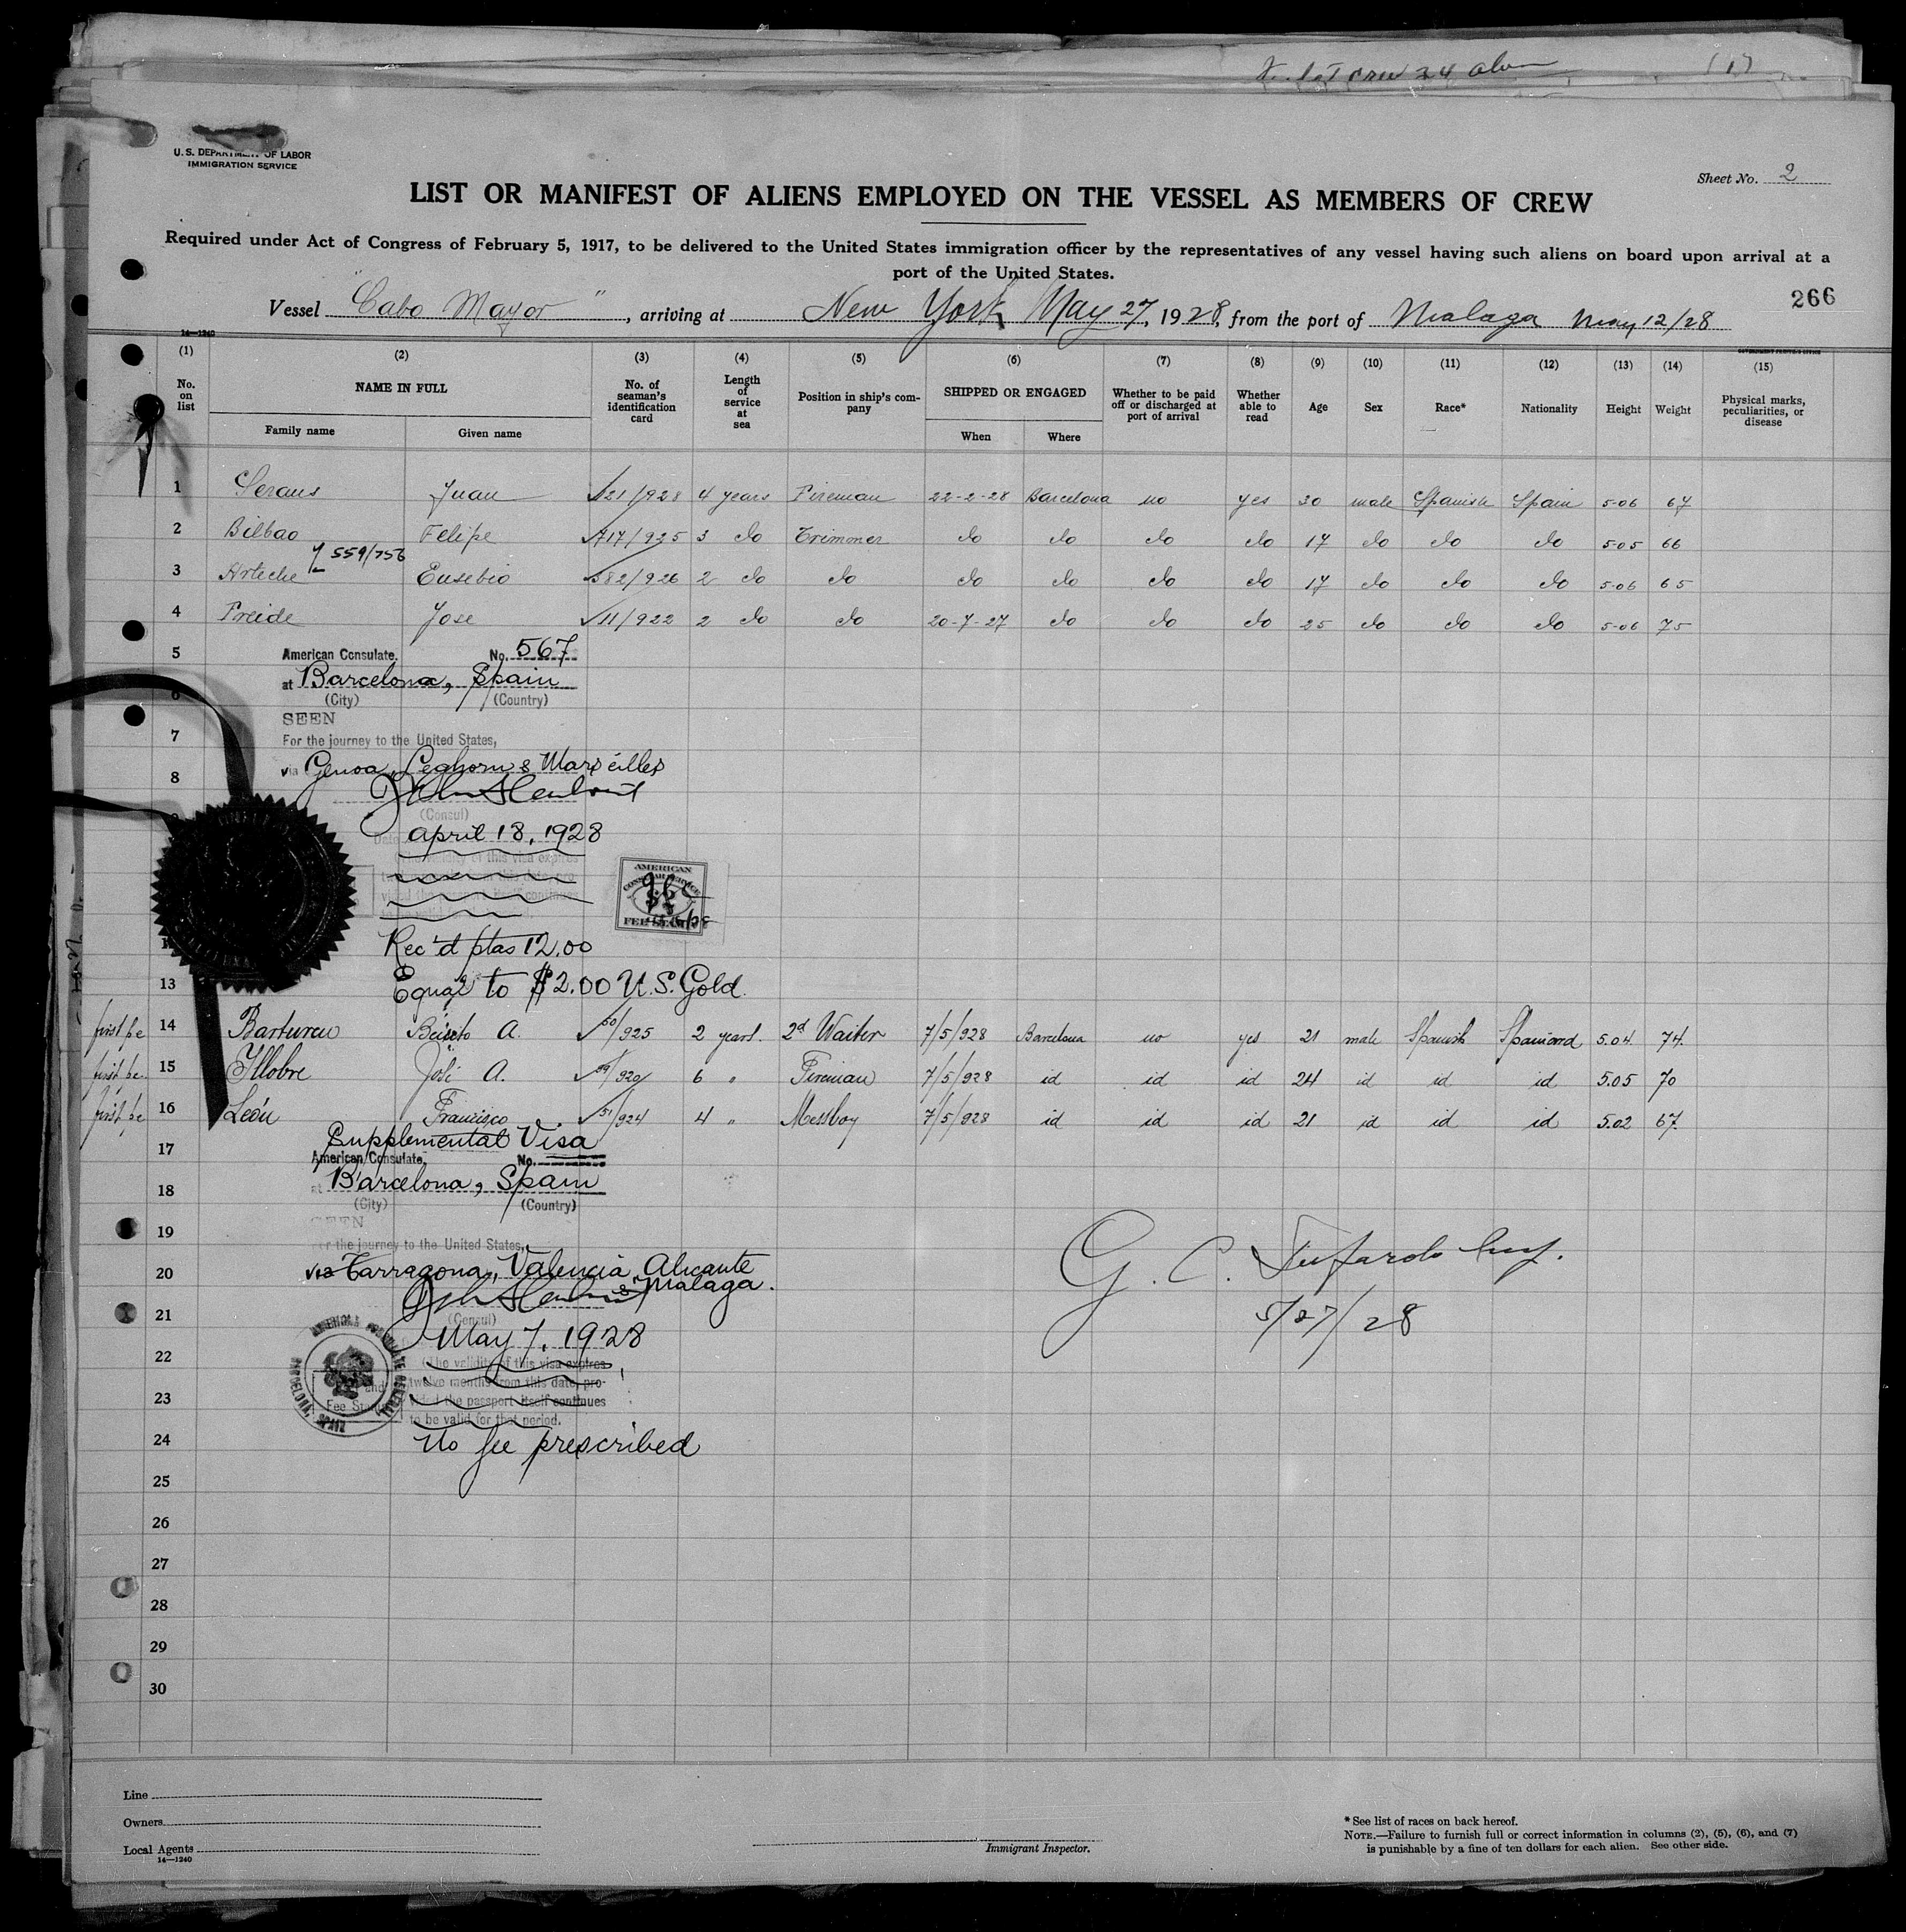 U. S. DEPARTMENT OF LABOR
IMMIGRATION SERVICE
Sheet No. 2
LIST OR MANIFEST OF ALIENS EMPLOYED ON THE VESSEL AS MEMBERS OF CREW
Required under Act of Congress of February 5, 1917, to be delivered to the United States immigration officer by the representatives of any vessel having such aliens on board upon arrival at a
port of the United States.
266
Vessel "Cabo Mayor", arriving at New York May 27, 1928, from the port of Malaga May 12/28
14—1240
(1) (2) (3) (4) (5) (6) (7) (8) (9) (10) (11) (12) (13) (14) (15)
No. on list NAME IN FULL No. of seaman's identification card Length of service at sea Position in ship's company SHIPPED OR ENGAGED Whether to be paid off or discharged at port of arrival Whether able to read Age Sex Race* Nationality Height Weight Physical marks, peculiarities, or disease
Family name Given name When Where
1 Juan 21/928 4 years Fireman 22-2-28 Barcelona no yes 30 male Spanish Spain 5-06 67
2 Bilbao Felipe 417/925 3 do Trimmer do do do do 17 do do do 5-05 66
559/756
3 Arteche Eusebio 582/926 2 do do do do do do 17 do do do 5-06 65
4 Freide Jose 11/922 2 do do 20-7-27 do do do 25 do do do 5-06 75
5 American Consulate, No. 567
at Barcelona, Spain
6 (City) (Country)
SEEN
7 For the journey to the United States,
8 via Genoa, Leghorn & Marseilles
(Consul)
April 18, 1928
of this visa expires
AMERICAN CONSULAR SERVICE
FEE STAMP
Rec'd ptas 12.00
13 Equal to $2.00 U.S. Gold.
14 A. 50/925 2 years. 2d Waiter 7/5/928 Barcelona no yes 21 male Spanish Spaniard 5.04. 74.
15 Illobre José A. 6 " Fireman 7/5/928 id id id 24 id id id 5.05 70
16 León Francisco 51/924 4 " Messboy 7/5/928 id id id 21 id id id 5.02 67.
Supplemental Visa
17 American Consulate, No.
18 at Barcelona, Spain
(City) (Country)
19 SEEN
For the journey to the United States,
20 via Tarragona, Valencia, Alicante
& Malaga.
21 (Consul)
May 7, 1928
22 (The validity of this visa expires
twelve months from this date, pro-
23 the passport itself continues
to be valid for that period.
Fee Stamp
AMERICAN CONSULATE GENERAL
BARCELONA, SPAIN
24 No fee prescribed
G. C.
5/27/28
25
26
27
28
29
30
Line
Owners
Local Agents
14—1240
Immigrant Inspector.
* See list of races on back hereof.
NOTE.—Failure to furnish full or correct information in columns (2), (5), (6), and (7)
is punishable by a fine of ten dollars for each alien. See other side.